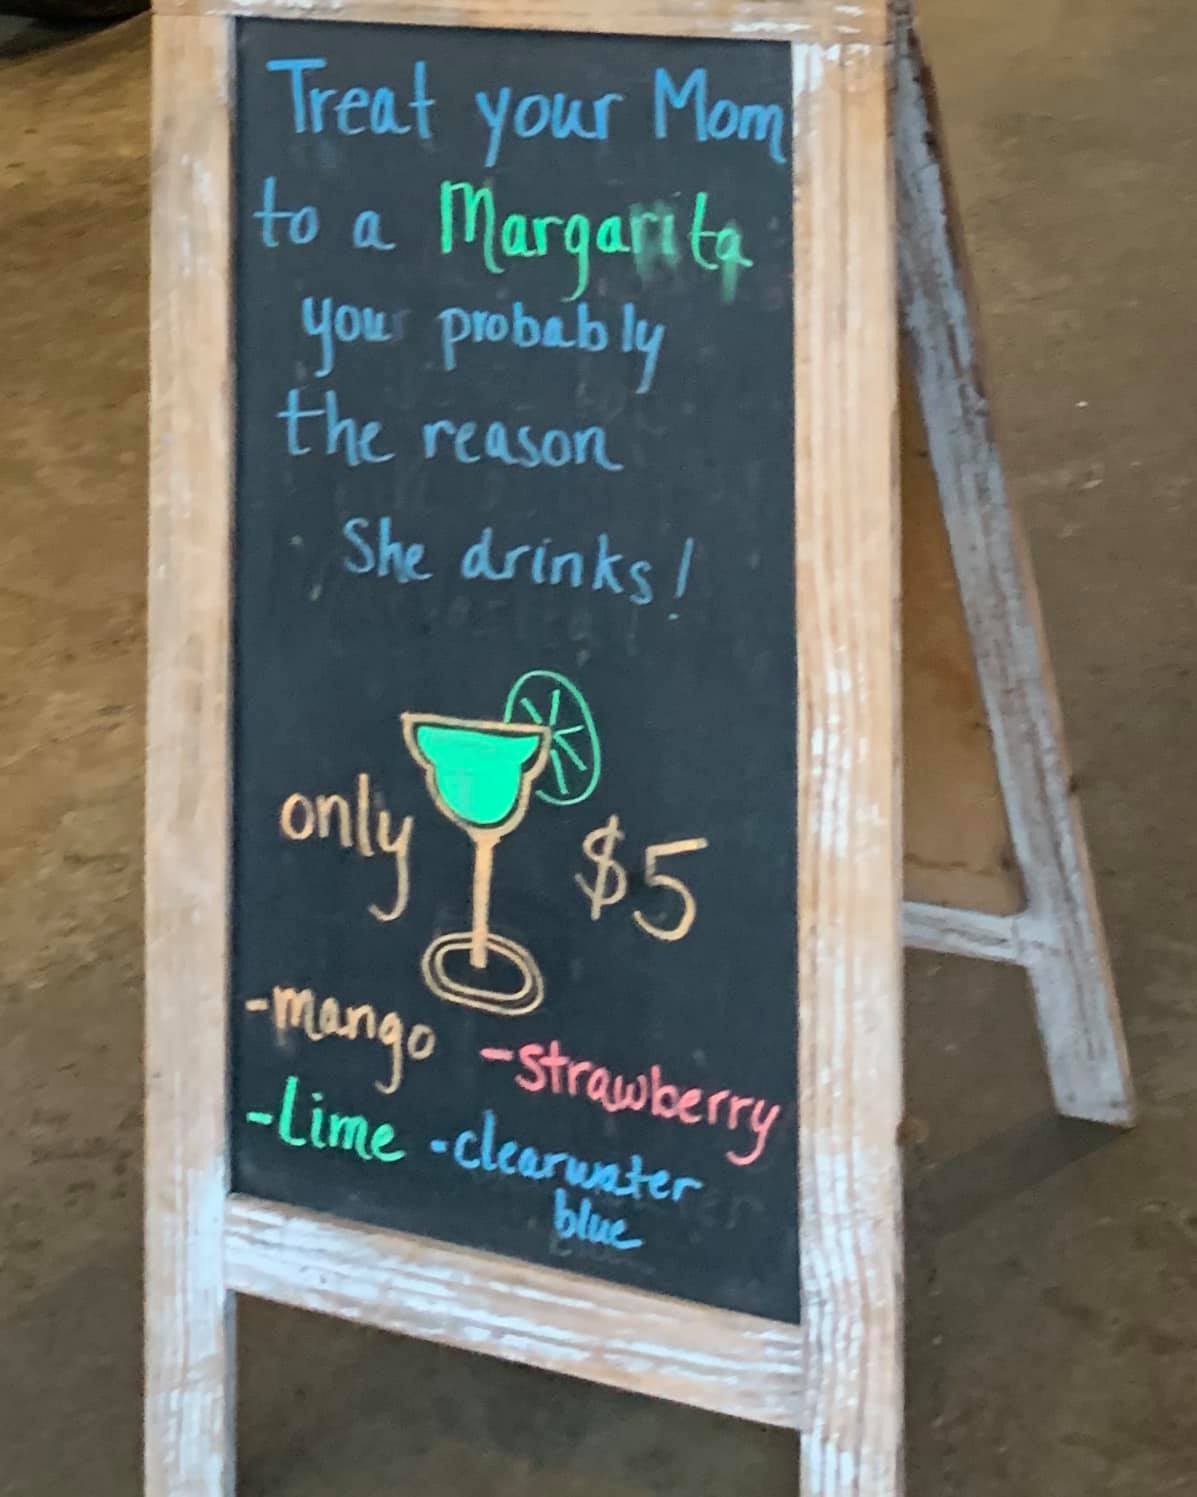 Treat your Mom
to a Margarita
you probably
the reason
She drinks!
only $5
-mango -strawberry
-Lime -clearwater
blue